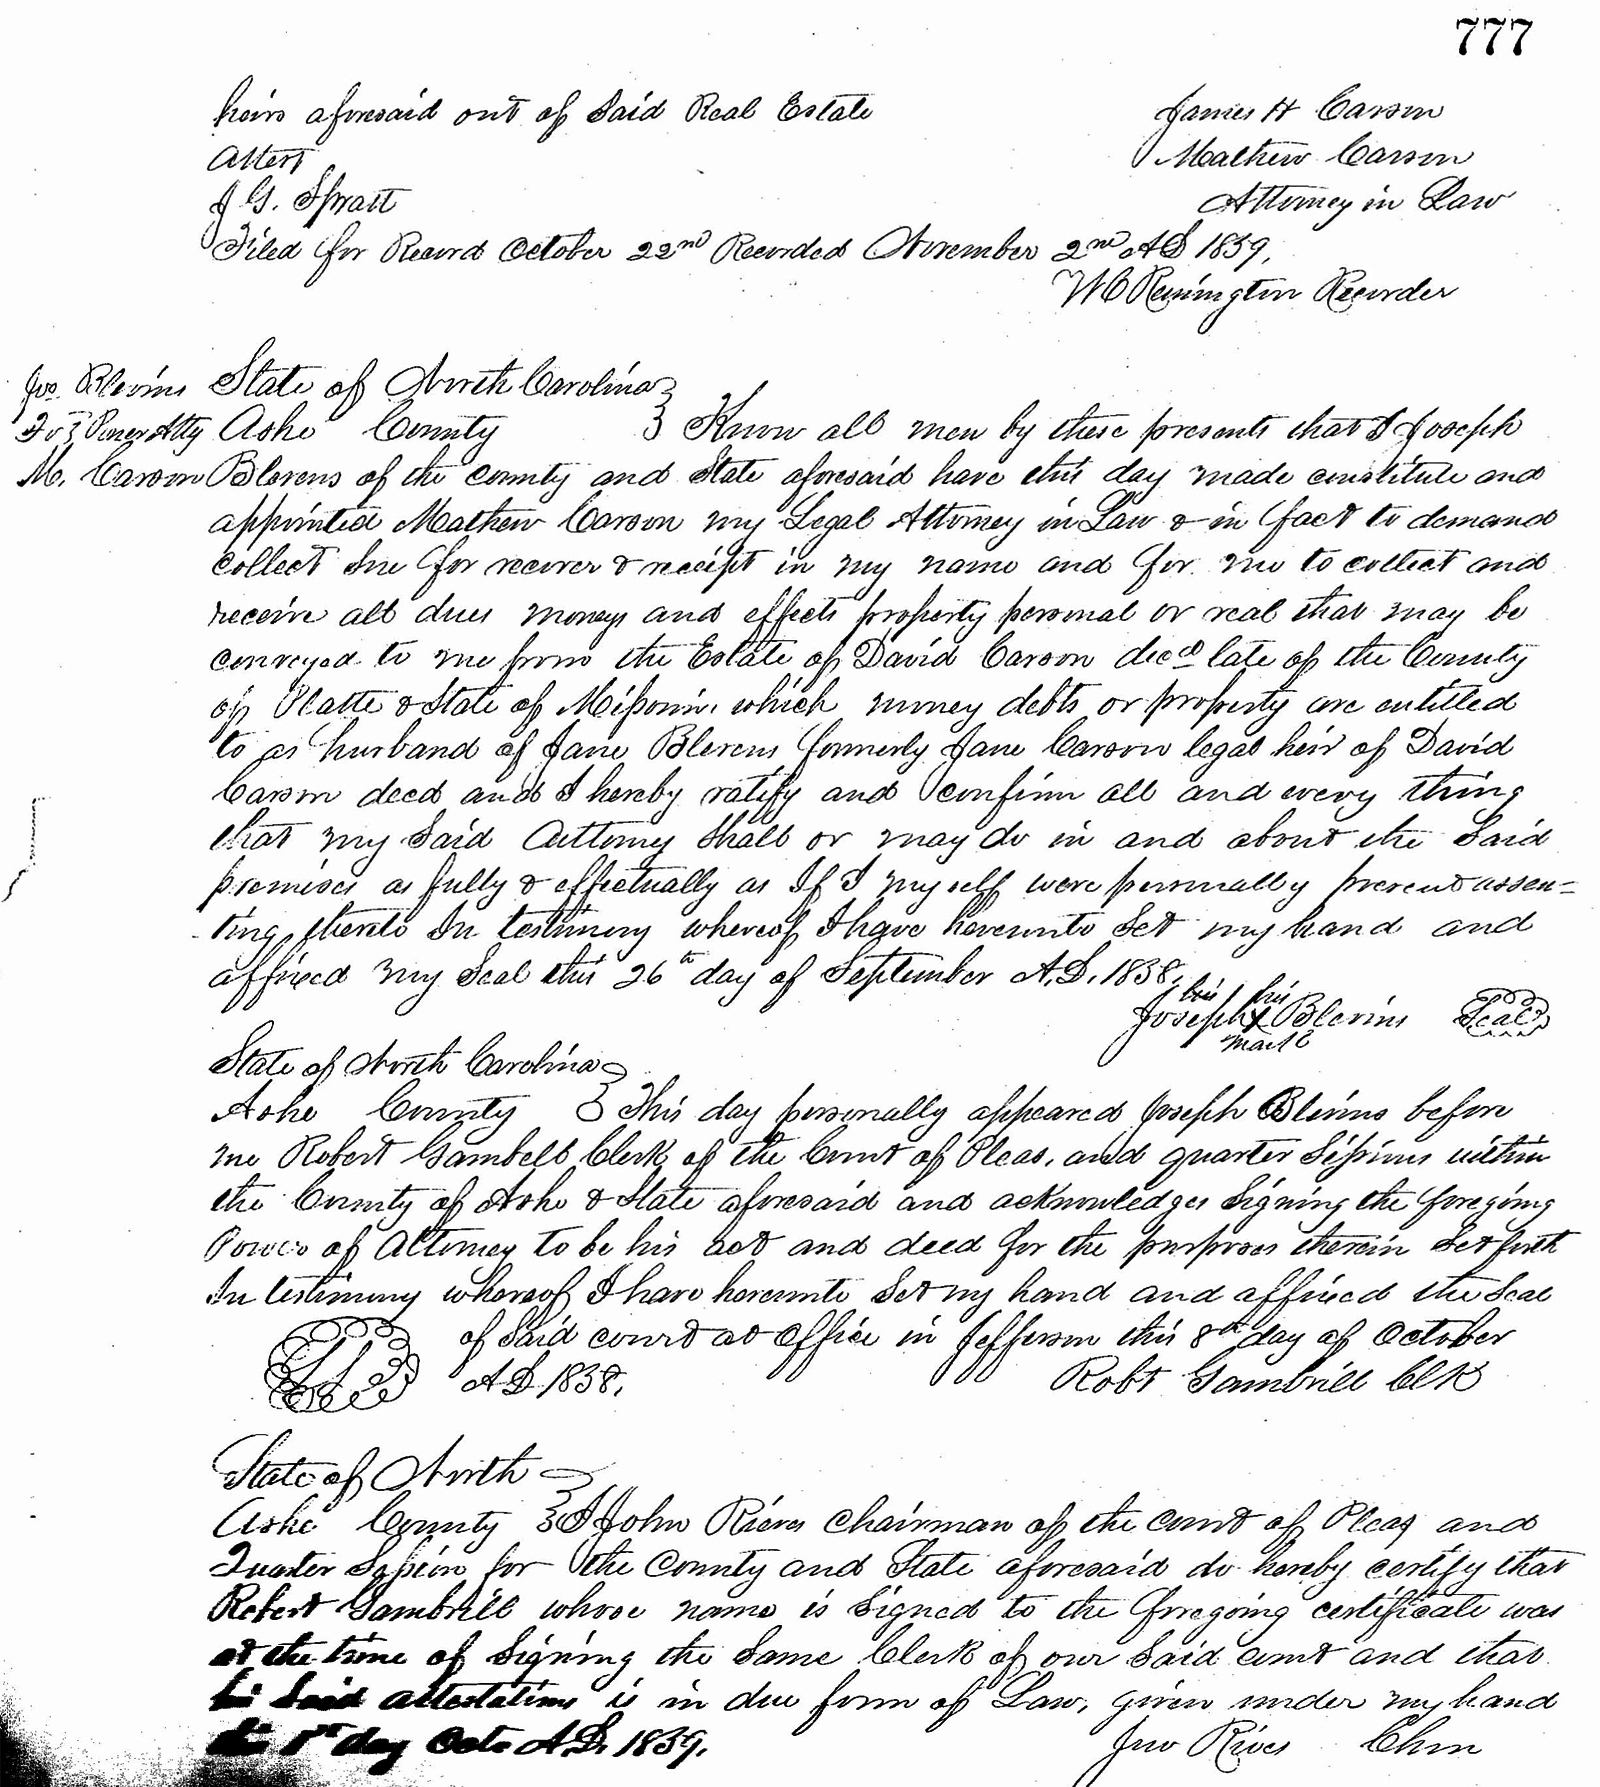 777
heirs aforesaid out of Said Real Estate James H Carson
Attest Mathew Carson
J G. Spratt Attorney in Law
Filed for Record October 22nd Recorded November 2nd AD 1839,
W C Remington Recorder
Jos. Blevins State of North Carolina
To Power Atty Ashe County Know all men by these presents that I Joseph
M. Carson Blevens of the county and State aforesaid have this day made constitute and
appointed Mathew Carson my Legal Attorney in Law & in fact to demand
collect Sue for recover & receipt in my name and for me to collect and
receive all dues moneys and effects property personal or real that may be
conveyed to me from the Estate of David Carson decd late of the County
of Platte & State of Missouri, which money debts or property are entitled
to as husband of Jane Blevens formerly Jane Carson legal heir of David
Carson deced and I hereby ratify and confirm all and every thing
that my Said Attorney Shall or may do in and about the Said
premises as fully & effectually as If I myself were personally present assen=
ting thereto In testimony whereof I have hereunto Set my hand and
affixed my Seal this 26th day of September A.D. 1838.
his his
Joseph X Blevins Seal
mark
State of North Carolina
Ashe County This day personally appeared Joseph Blevins before
me Robert Gambell Clerk of the Court of Pleas, and quarter Sessions within
the County of Ashe & State aforesaid and acknowledges Signing the foregoing
Power of Attorney to be his act and deed for the purposes therein Set forth
In testimony whereof I have hereunto Set my hand and affixed the Seal
of Said court at office in Jefferson this 8th day of October
A D 1838. Robt Gambrill Clk
State of North
Ashe County I John Rieves Chairman of the court of Pleas and
Quarter Session for the County and State aforesaid do hereby certify that
Robert Gambrill whose name is Signed to the foregoing certificate was
at the time of Signing the Same Clerk of our Said court and that
his Said attestation is in due form of Law, given under my hand
day Octo A.D. 1839. Jno Rives Chm